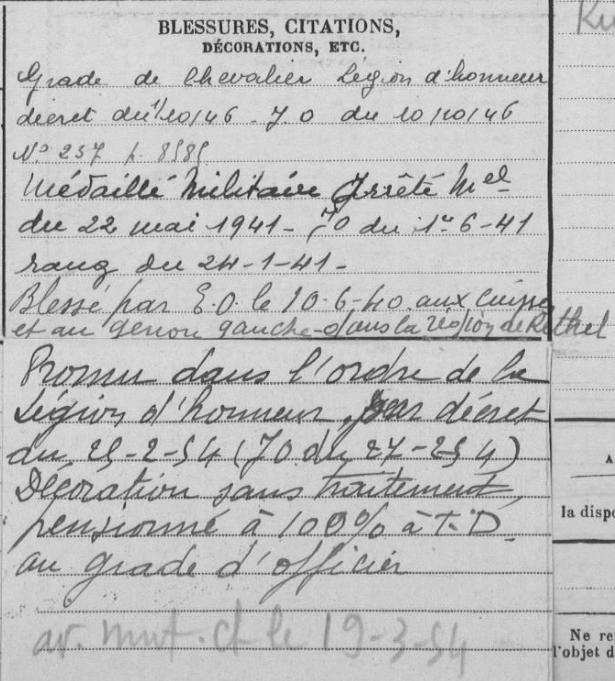 BLESSURES, CITATIONS,
DÉCORATIONS, ETC.
Grade de Chevalier Légion d'honneur
décret du 1/10/46 - J.O du 10/10/46
N° 237 p. 8585
Médaille Militaire Arrêté Mel
du 22 mai 1941 - JO du 1er 6-41
rang du 24-1-41 -
Blessé par E.O. le 10-6-40 aux cuisses
et au genou gauche - dans la région de Rethel
Promu dans l'ordre de la
Légion d'honneur par décret
du 25-2-54 (JO du 27-2-54)
Décoration sans traitement,
pensionné à 100% à T.D.
au grade d'officier
av. mut. le 19-3-54
la dispo
Ne re
l'objet d